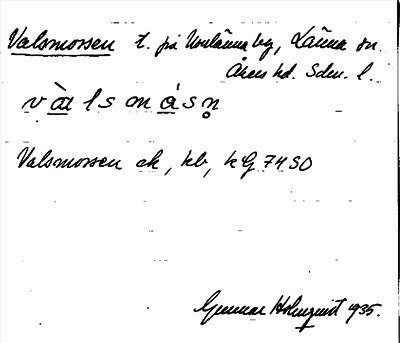 Valsmossen t. på Norrlänna by, Länna sn.
Åkers hd. Sdm. l.
v à l s m ǻ s n̥
Valsmossen ek, kb, kG 74 SO
Gunnar Holmquist 1935.